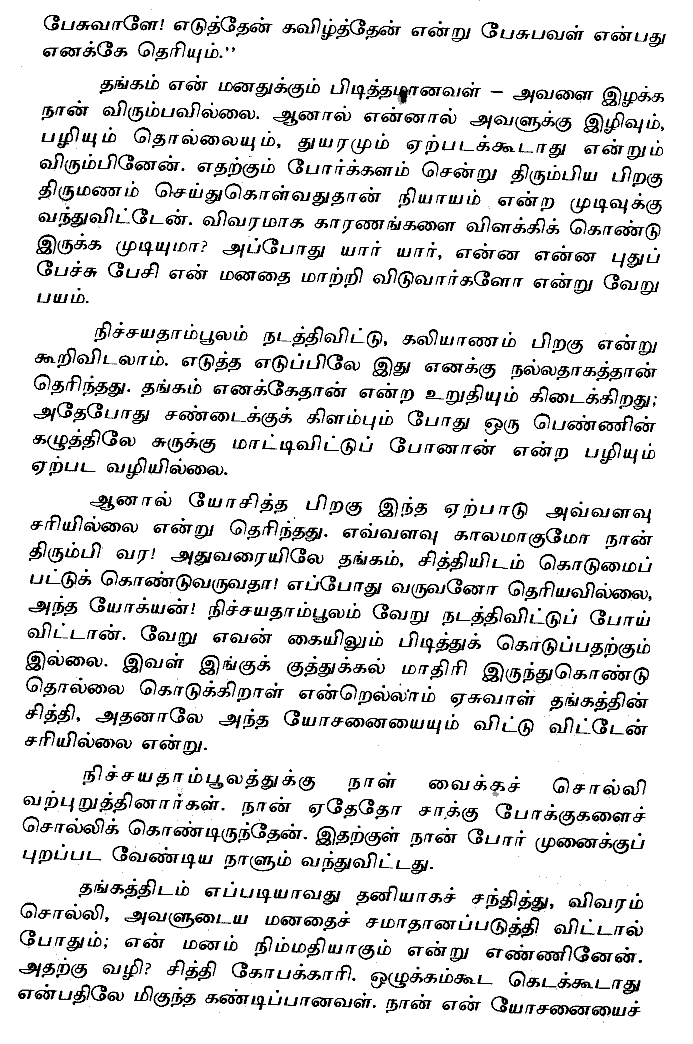 பேசுவாளே! எடுத்தேன் கவிழ்த்தேன் என்று பேசுபவள் என்பது
எனக்கே தெரியும்.''
தங்கம் என் மனதுக்கும் பிடித்தமானவள் — அவளை இழக்க
நான் விரும்பவில்லை. ஆனால் என்னால் அவளுக்கு இழிவும்,
பழியும் தொல்லையும், துயரமும் ஏற்படக்கூடாது என்றும்
விரும்பினேன். எதற்கும் போர்க்களம் சென்று திரும்பிய பிறகு
திருமணம் செய்துகொள்வதுதான் நியாயம் என்ற முடிவுக்கு
வந்துவிட்டேன். விவரமாக காரணங்களை விளக்கிக் கொண்டு
இருக்க முடியுமா? அப்போது யார் யார், என்ன என்ன புதுப்
பேச்சு பேசி என் மனதை மாற்றி விடுவார்களோ என்று வேறு
பயம்.
நிச்சயதாம்பூலம் நடத்திவிட்டு, கலியாணம் பிறகு என்று
கூறிவிடலாம். எடுத்த எடுப்பிலே இது எனக்கு நல்லதாகத்தான்
தெரிந்தது. தங்கம் எனக்கேதான் என்ற உறுதியும் கிடைக்கிறது;
அதேபோது சண்டைக்குக் கிளம்பும் போது ஒரு பெண்ணின்
கழுத்திலே சுருக்கு மாட்டிவிட்டுப் போனான் என்ற பழியும்
ஏற்பட வழியில்லை.
ஆனால் யோசித்த பிறகு இந்த ஏற்பாடு அவ்வளவு
சரியில்லை என்று தெரிந்தது. எவ்வளவு காலமாகுமோ நான்
திரும்பி வர! அதுவரையிலே தங்கம், சித்தியிடம் கொடுமைப்
பட்டுக் கொண்டுவருவதா! எப்போது வருவனோ தெரியவில்லை,
அந்த யோக்யன்! நிச்சயதாம்பூலம் வேறு நடத்திவிட்டுப் போய்
விட்டான். வேறு எவன் கையிலும் பிடித்துக் கொடுப்பதற்கும்
இல்லை. இவள் இங்குக் குத்துக்கல் மாதிரி இருந்துகொண்டு
தொல்லை கொடுக்கிறாள் என்றெல்லாம் ஏசுவாள் தங்கத்தின்
சித்தி, அதனாலே அந்த யோசனையையும் விட்டு விட்டேன்
சரியில்லை என்று.
நிச்சயதாம்பூலத்துக்கு நாள் வைக்கச் சொல்லி
வற்புறுத்தினார்கள். நான் ஏதேதோ சாக்கு போக்குகளைச்
சொல்லிக் கொண்டிருந்தேன். இதற்குள் நான் போர் முனைக்குப்
புறப்பட வேண்டிய நாளும் வந்துவிட்டது.
தங்கத்திடம் எப்படியாவது தனியாகச் சந்தித்து, விவரம்
சொல்லி, அவளுடைய மனதைச் சமாதானப்படுத்தி விட்டால்
போதும்; என் மனம் நிம்மதியாகும் என்று எண்ணினேன்.
அதற்கு வழி? சித்தி கோபக்காரி. ஒழுக்கம்கூட கெடக்கூடாது
என்பதிலே மிகுந்த கண்டிப்பானவள். நான் என் யோசனையைச்